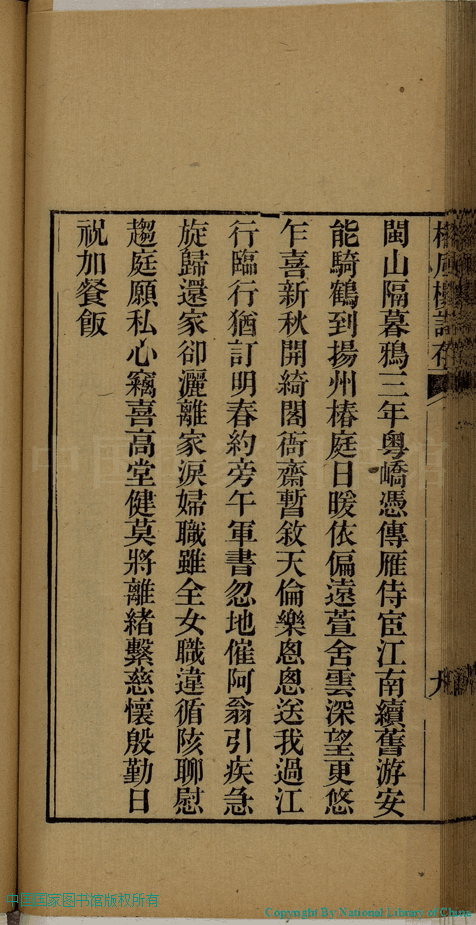 閩山隔暮鴉三年粵嶠憑傳雁侍宦江南續舊游安
能騎鶴到揚州椿庭日暖依偏遠萱舍雲深望更悠
乍喜新秋開綺閣衙齋暫敘天倫樂恖恖送我過江
行臨行猶訂明春約旁午軍書忽地催阿翁引疾急
旋歸還家卻灑離家淚婦職雖全女職違循陔聊慰
趨庭願私心竊喜高堂健莫將離緒繫慈懷殷勤日
祝加餐飯
九
中国国家图书馆版权所有
Copyright By National Library of China